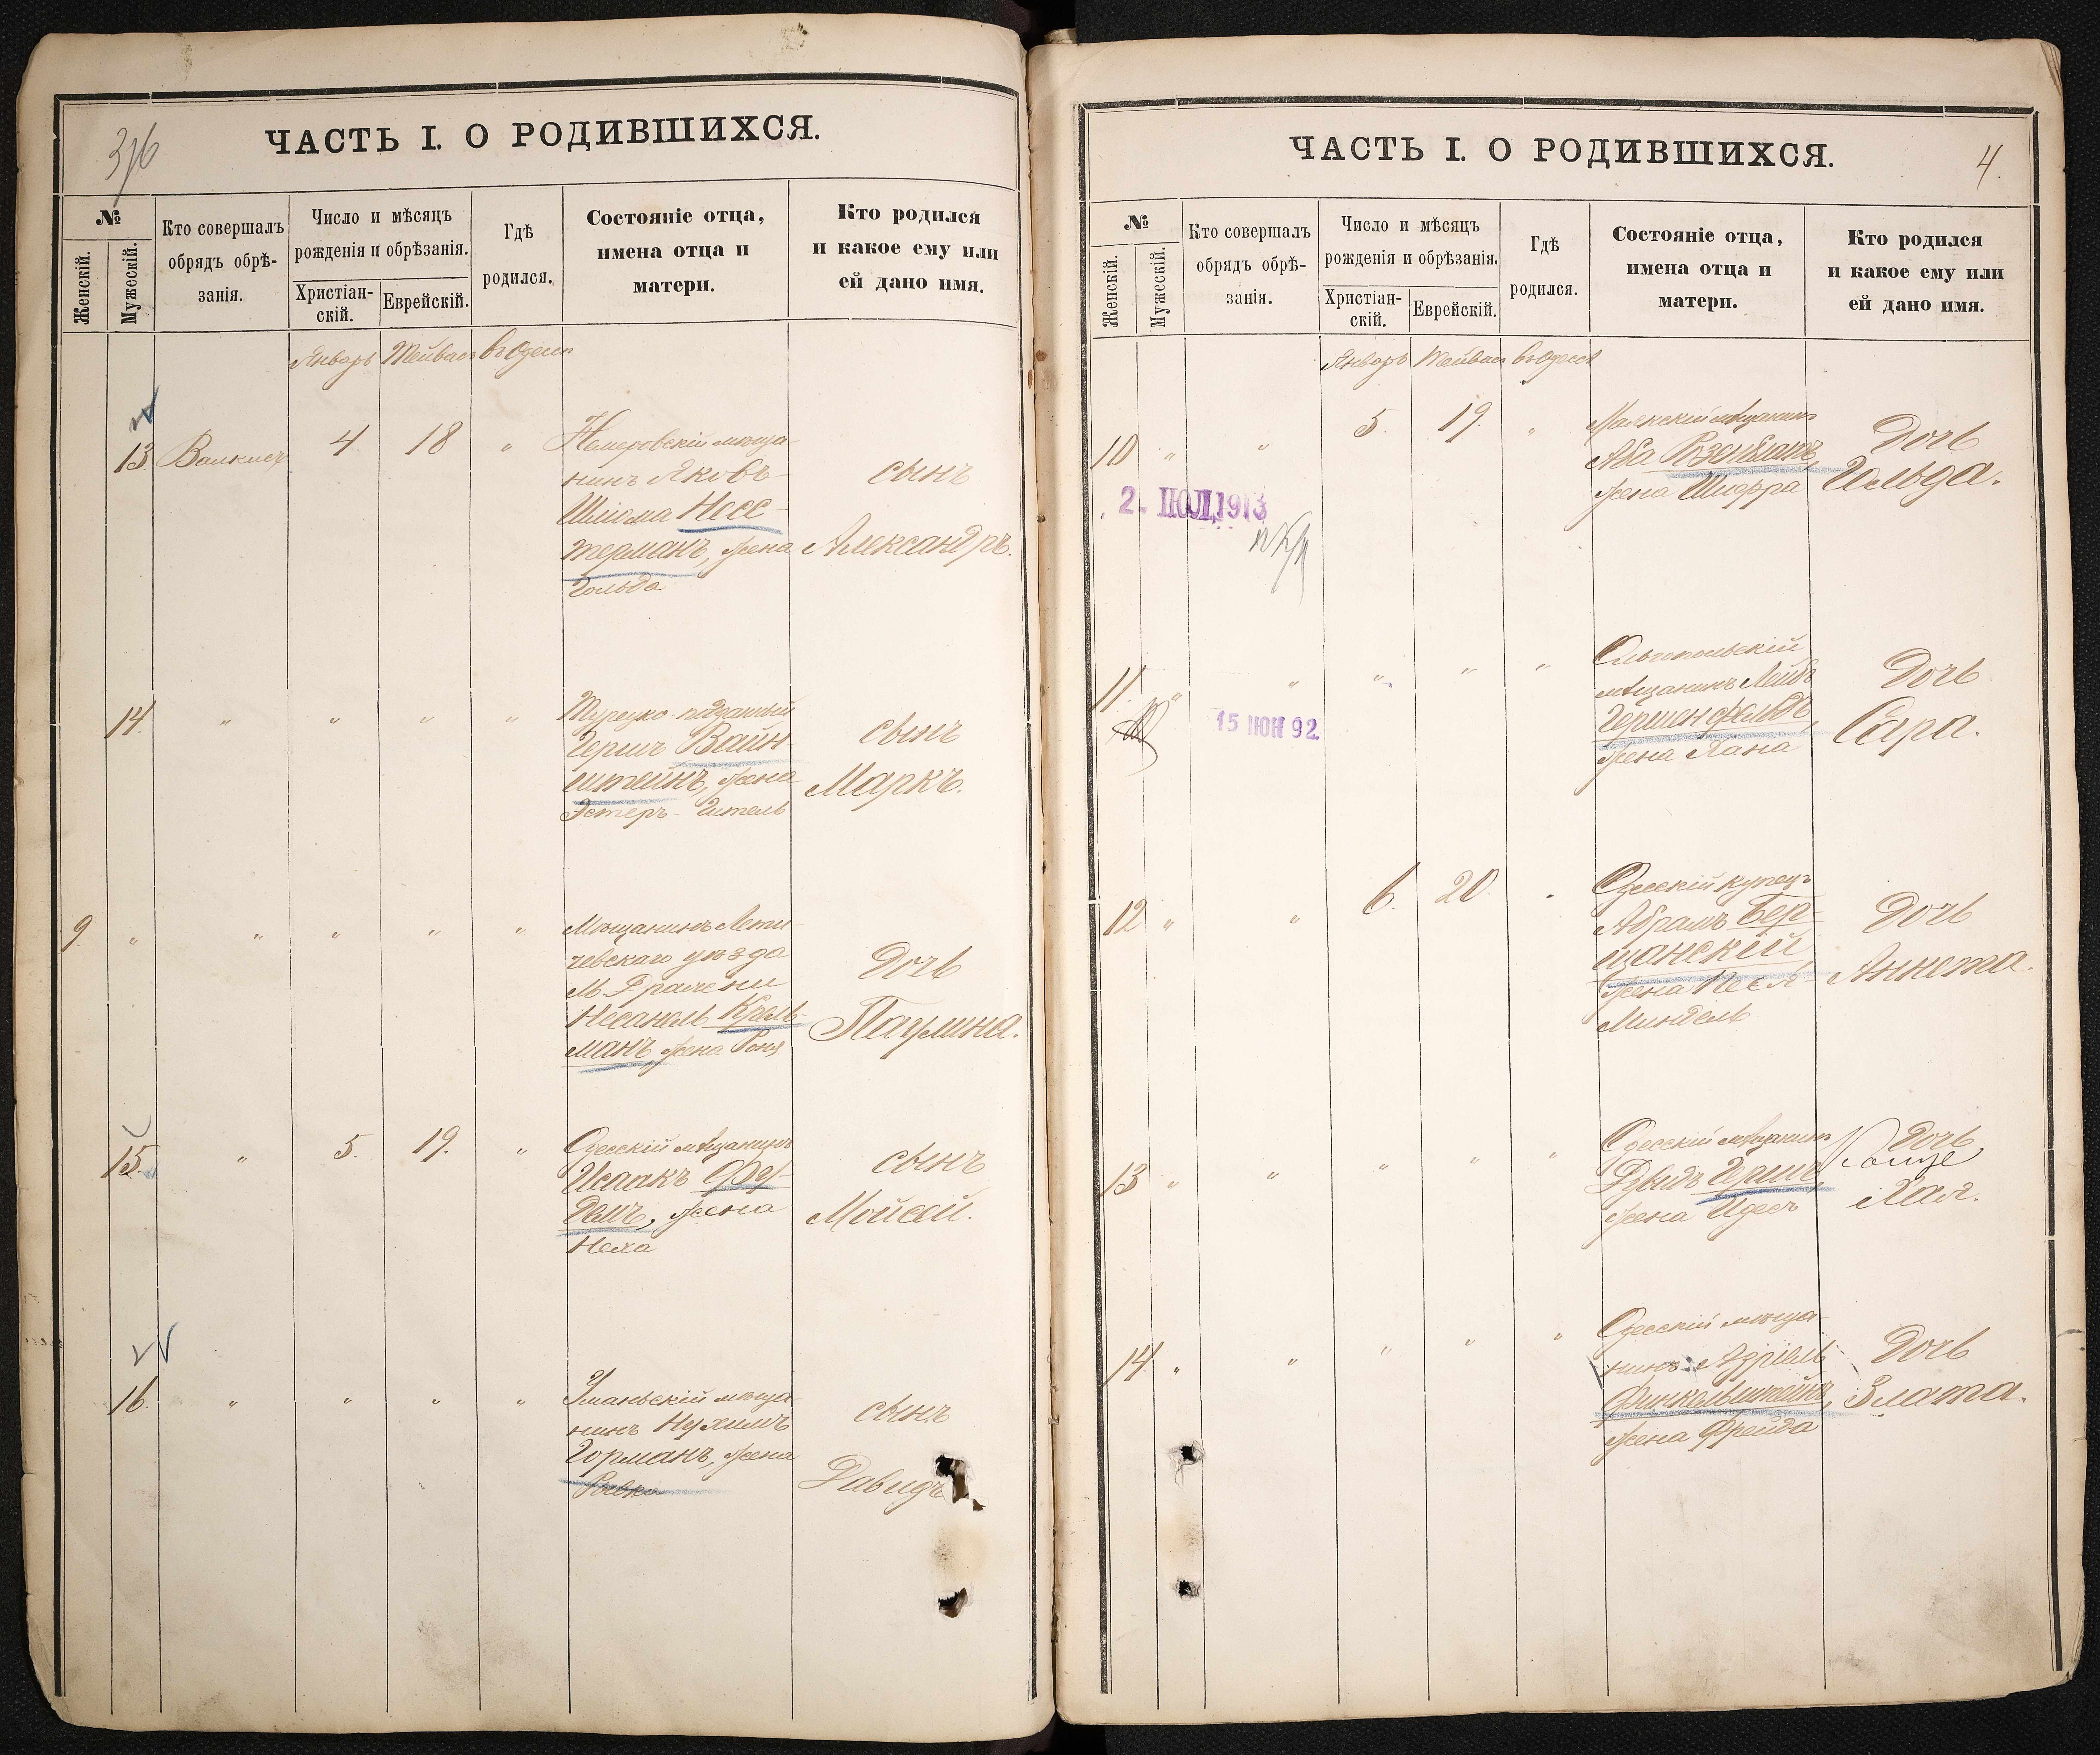 ЧАСТЬ I. О РОДИВШИХСЯ.
№
Женскій.
Мужескій.
Кто совершалъ
обрядъ обрѣ-
занія.
Число и мѣсяцъ
рожденія и обрѣзанія.
Христіан-
скій.
Еврейскій.
Гдѣ
родился.
Состояніе отца,
имена отца и
матери.
Кто родился
и какое ему или
ей дано имя.
Январь Тейвас въ Одессѣ
13. 4 18 "
Немеровскій мѣща-
нинъ Яковъ-
Шлиома Носс-
терманъ, жена
Гольда
сынъ
Александръ.
14. " " " "
Турецко-подданный
Герш Вайн-
штейнъ, жена
Эстеръ-Гитель
сынъ
Маркъ.
9. " " " " "
Мѣщанинъ Лети-
чевскаго уѣзда
м.
Несанель Крель-
манъ, жена
Дочь
Паулина.
15. " 5. 19. "
Одесскій мѣщанинъ
Исаакъ
жена
Неха
сынъ
Мойсей.
16. " " " "
Уманьскій мѣща-
нинъ Нухимъ
Горманъ, жена
Ривка
сынъ
Давидъ
ЧАСТЬ I. О РОДИВШИХСЯ.
4.
№
Женскій.
Мужескій.
Кто совершалъ
обрядъ обрѣ-
занія.
Число и мѣсяцъ
рожденія и обрѣзанія.
Христіан-
скій.
Еврейскій.
Гдѣ
родился.
Состояніе отца,
имена отца и
матери.
Кто родился
и какое ему или
ей дано имя.
Январь Тейвас въ Одессѣ
10 " " 5 19. "
2 - ІЮЛ.1913
Маякскій мѣщанинъ
Аба Розенблатъ,
жена Шифра
Дочь
Гольда.
11. " " " " "
15 ІЮН 92
Ольгопольскій
мѣщанинъ Лейбъ
Гершенфельдъ,
жена Хана
Дочь
Сара.
12 " " 6. 20.
Одесскій купецъ
Абрамъ Бер-
щанскій,
жена Песя-
Миндель
Дочь
Аннета.
13 " " " " "
Одесскій мѣщанинъ
Давидъ Герш,
жена Идесъ
Дочь
Хая.
14. " " " " "
Одесскій мѣща-
нинъ Азріель
Финкельштейнъ,
жена Фрейда
Дочь
Злата.